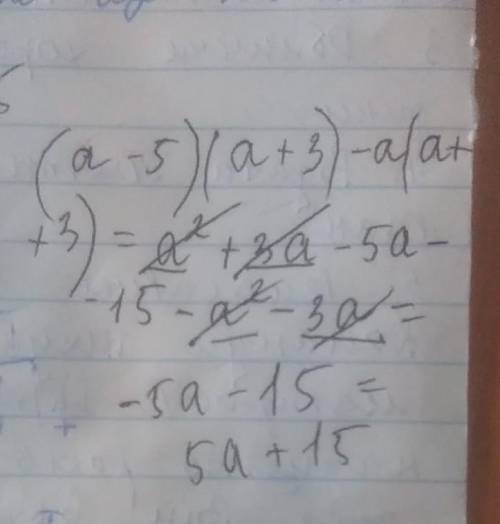 (a - 5)(a + 3) - a(a +
+ 3) = a² + 3a - 5a -
- 15 - a² - 3a =
- 5a - 15 =
5a + 15